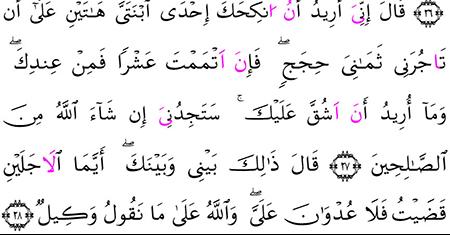 ﴿٢٦﴾ قَالَ إِنِّيَ أُرِيدُ أَنُ انكِحَكَ إِحْدَى اَبْنَتَيَّ هَـٰتَيْنِ عَلَىٰٓ أَن
تَاجُرَنِي ثَمَـٰنِيَ حِجَجٍ ۖ فَإِنَ اَتْمَمْتَ عَشْرًا فَمِنْ عِندِكَ ۖ
وَمَآ أُرِيدُ أَنَ اَشُقَّ عَلَيْكَ ۚ سَتَجِدُنِيَ إِن شَآءَ اللَّهُ مِنَ
الصَّـٰلِحِينَ ﴿٢٧﴾ قَالَ ذَٰلِكَ بَيْنِي وَبَيْنَكَ ۖ أَيَّمَا اَلَاجَلَيْنِ
قَضَيْتُ فَلَا عُدْوَٰنَ عَلَيَّ ۖ وَاللَّهُ عَلَىٰ مَا نَقُولُ وَكِيلٌ ﴿٢٨﴾